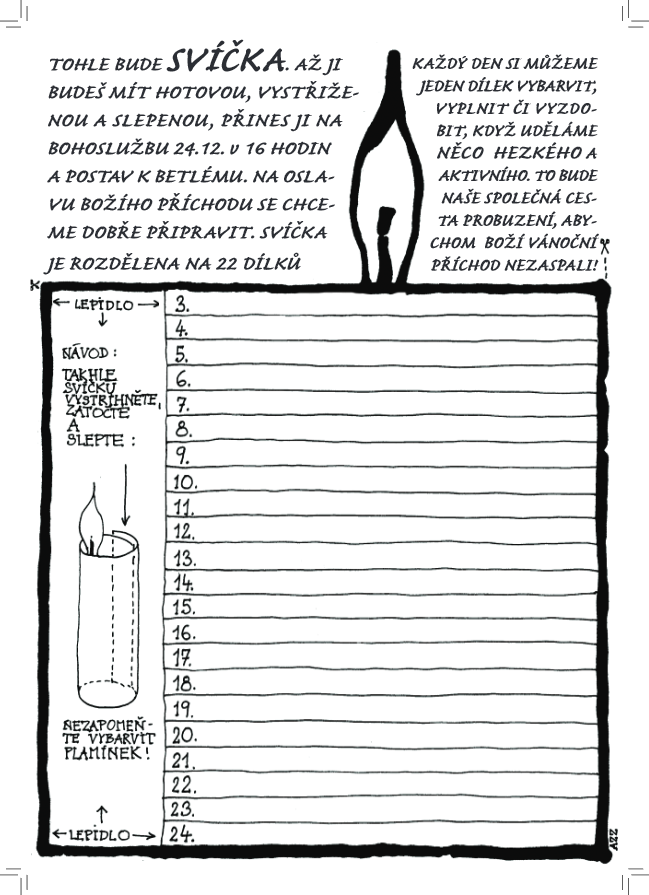 TOHLE BUDE SVÍČKA. AŽ JI
BUDEŠ MÍT HOTOVOU, VYSTŘIŽE-
NOU A SLEPENOU, PŘINES JI NA
BOHOSLUŽBU 24.12. V 16 HODIN
A POSTAV K BETLÉMU. NA OSLA-
VU BOŽÍHO PŘÍCHODU SE CHCE-
ME DOBŘE PŘIPRAVIT. SVÍČKA
JE ROZDĚLENA NA 22 DÍLKŮ
KAŽDÝ DEN SI MŮŽEME
JEDEN DÍLEK VYBARVIT,
VYPLNIT ČI VYZDO-
BIT, KDYŽ UDĚLÁME
NĚCO HEZKÉHO A
AKTIVNÍHO. TO BUDE
NAŠE SPOLEČNÁ CES-
TA PROBUZENÍ, ABY-
CHOM BOŽÍ VÁNOČNÍ
PŘÍCHOD NEZASPALI!
LEPIDLO
NÁVOD:
TAKHLE
SVÍČKU
VYSTŘIHNĚTE,
ZATOČTE
A
SLEPTE:
NEZAPOMEŇ-
TE VYBARVIT
PLAMÍNEK!
LEPIDLO
3.
4.
5.
6.
7.
8.
9.
10.
11.
12.
13.
14.
15.
16.
17.
18.
19.
20.
21.
22.
23.
24.
AZZ